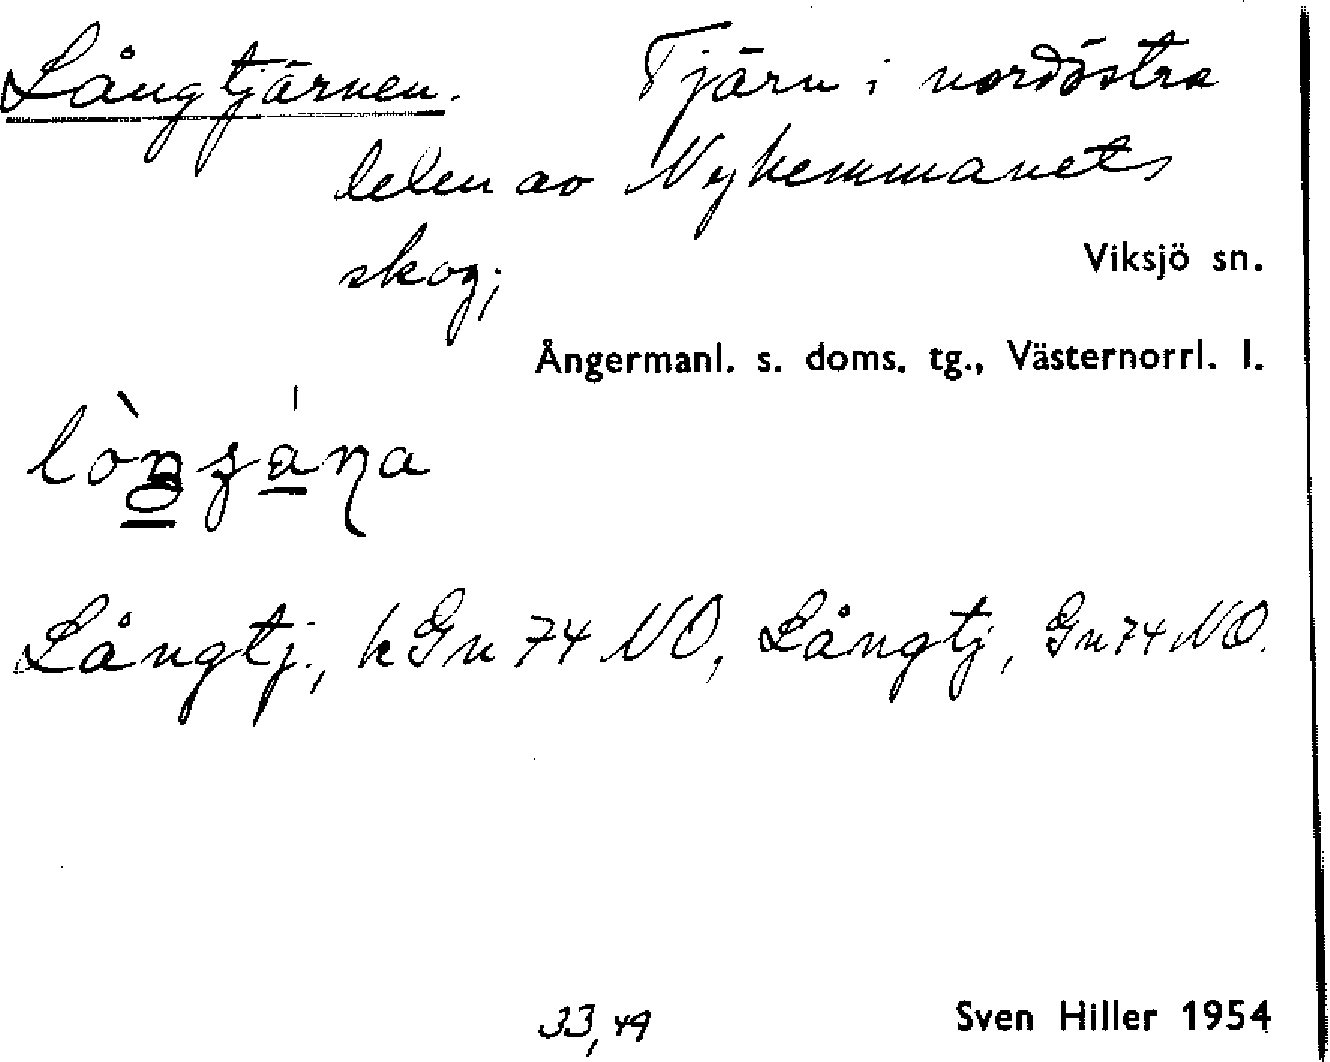 Långtjärnen. Tjärn i nordöstra
delen av Nyhemmanets
skog;
Viksjö sn.
Ångermanl. s. doms. tg., Västernorrl. l.
Långtj., kGn 74 NO, Långtj, Gn 74 NO.
33,49
Sven Hiller 1954